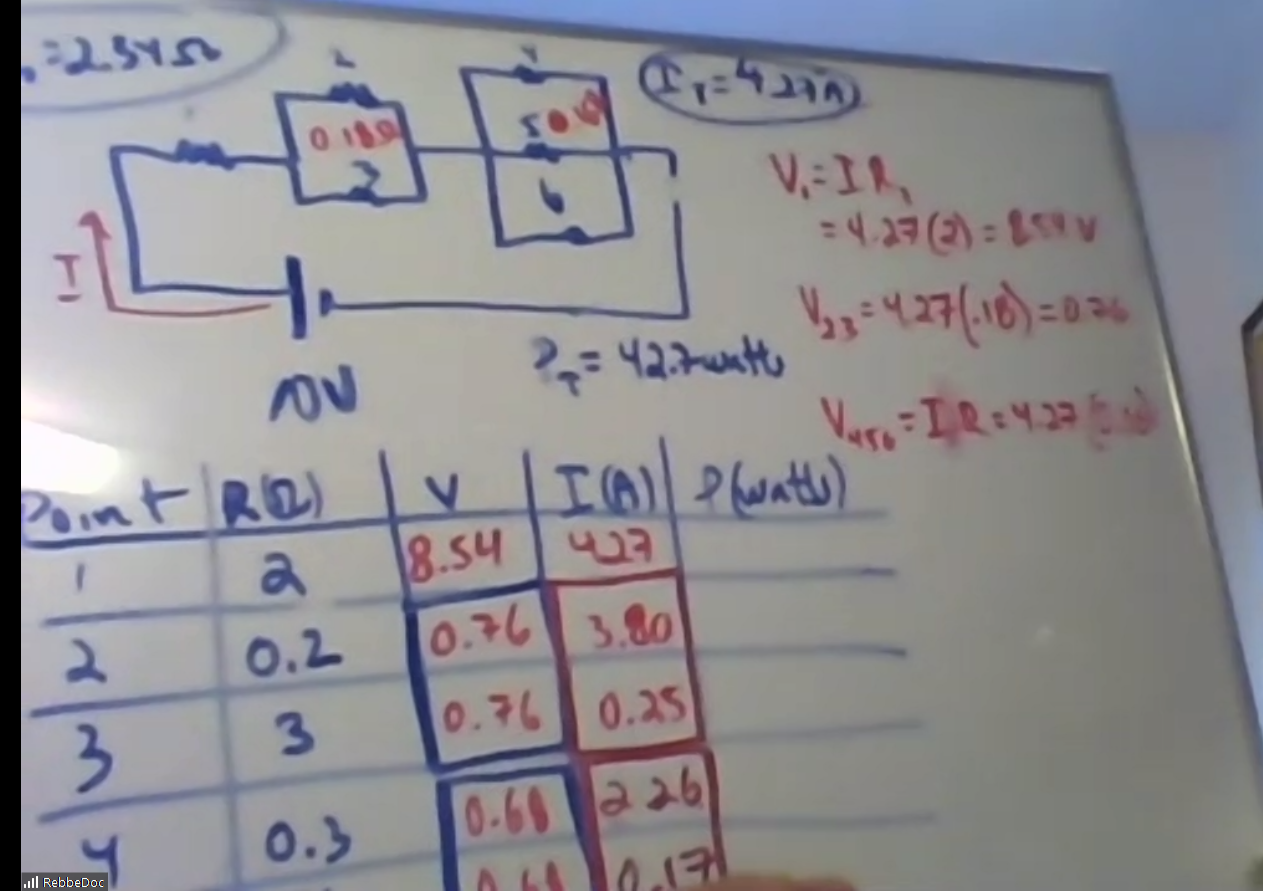 =2.34Ω
I_T=4.27A
2
4
0.18Ω
5
3
6
I
10V
P_T = 42.7 watts
V₁=IR₁
=4.27(2)=8.54 V
V₂₃=4.27(.18)=0.76
V₄₅₆=IR=4.27
Point R(Ω) V I(A) P(watts)
1 2 8.54 4.27
2 0.2 0.76 3.80
3 3 0.76 0.25
4 0.3 0.68 2.26
0.68 0.17
RebbeDoc